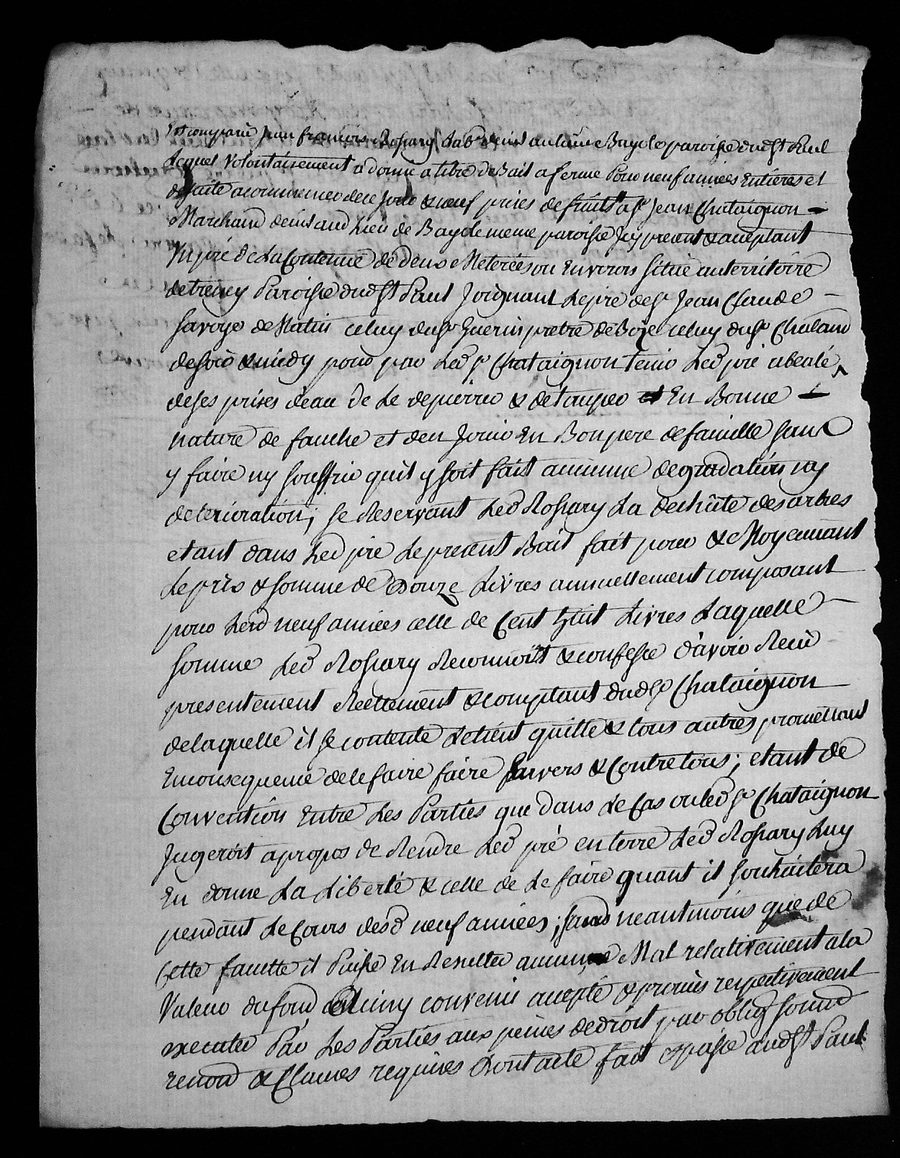 Est comparu jean françois Rossary Lab demt au lieu Bayole paroisse dud St Paul
Lequel volontairement a donné a titre de Bail a ferme Pour neuf années Entieres et
de suite a commencer de ce jour & neuf prises de fruits a Sr Jean Chataignon
Marchand demt aud Lieu de Bayole meme paroisse Icy present & acceptant
Un pré de La Contenue de deux Meterées ou Environs situé au territoire
de Paroisse dud St Paul Joignant Le pré de Sr Jean Claude
Savoye de Matin celuy du Sr Guerin pretre de Bize celuy du Sr Chaland
de soir & midy pour par Led Sr Chataignon tenir Led pré abealé
de ses prises d'eau de Le depierrer & detauper et En Bonne
nature de fauche et d'en Jouir En Bon pere de famille sans
y faire ny souffrir quil y soit fait aucunne degradation ny
deterioration; se Reservant Led Rossary La dechute des arbres
etant dans Led pré Le present Bail fait pour & Moyennant
Le prix & somme de Douze Livres annuellement composant
pour Lesd neuf années celle de Cent huit Livres Laquelle
somme Led Rossary Reconnoit & confesse d'avoir Reçû
presentement Reellement & comptant dud Sr Chataignon
de laquelle il se contente Le tient quitte & tous autres promettant
En consequence de le faire faire Envers & Contre tous; etant de
Convention Entre Les Parties que dans Le Cas ou led Sr Chataignon
Jugeroit apropos de Rendre Led pré en terre Led Rossary Luy
En donne La Liberté & celle de Le faire quant il souhaitera
pendant Le Cours desd neuf années; sans neantmoins que de
Cette faculté il Puisse En Resulter aucunne Mal relativement a la
Valeur du fond Ainsy convenu accepté & promis respectivement
executer Par Les Parties aux peines de droit par oblig soumd
renond & Clauses requises Dont acte fait & passé aud St Paul